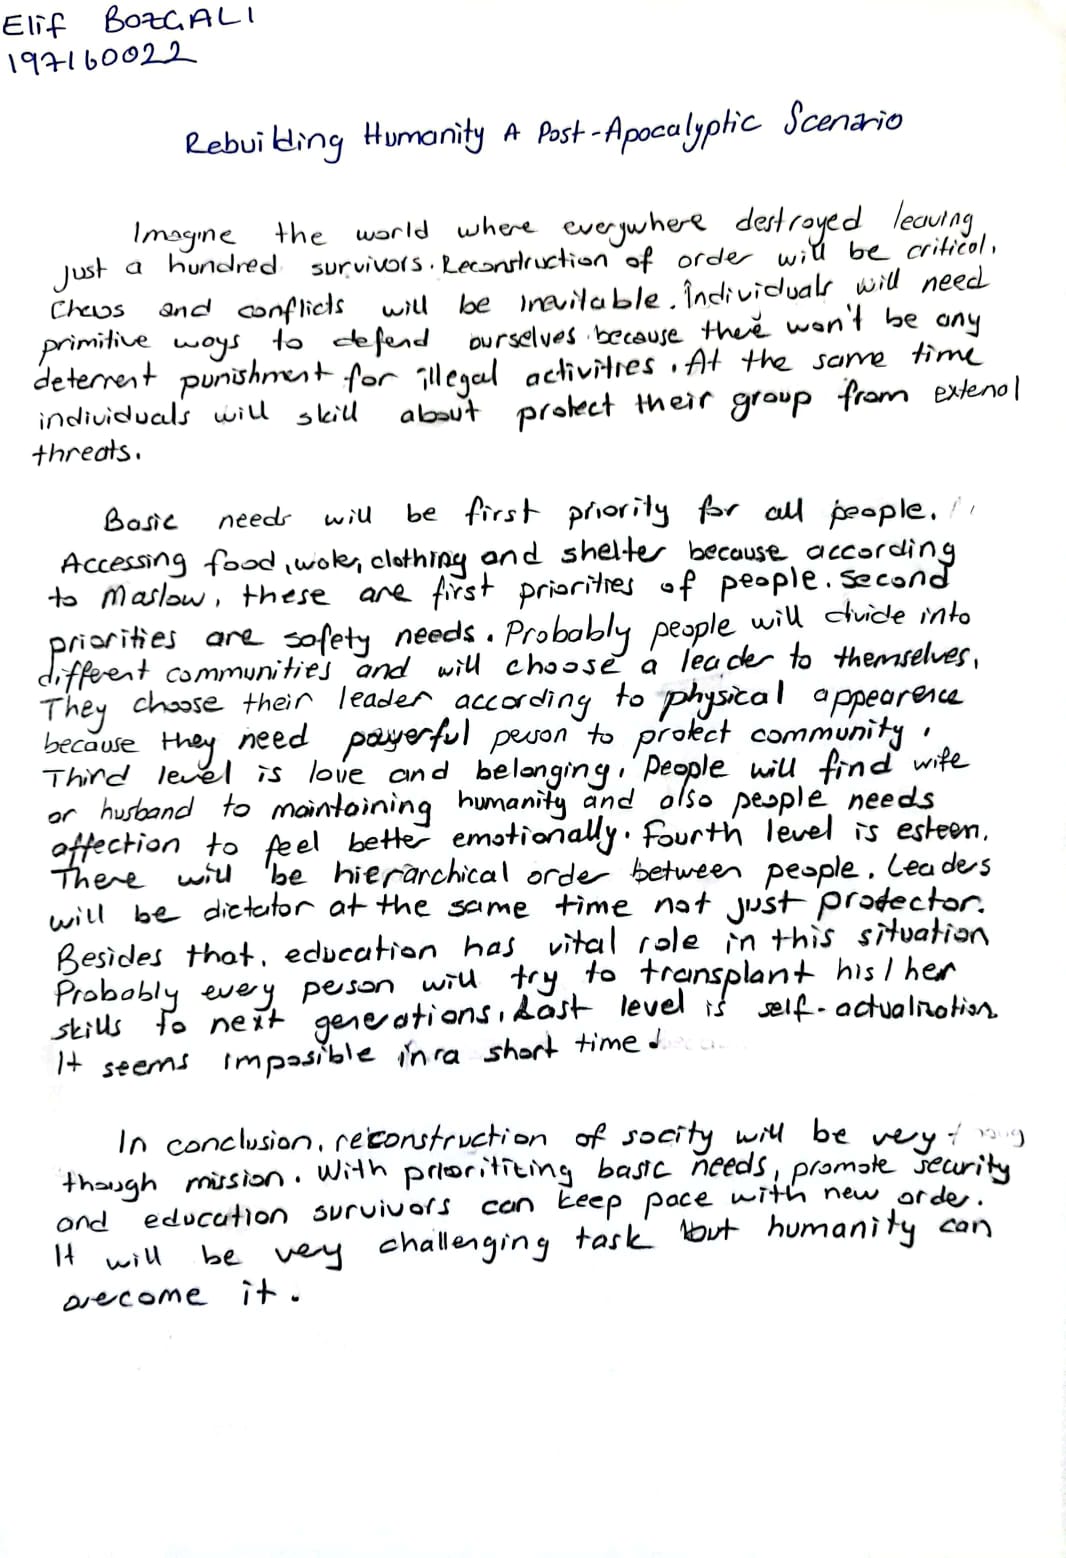 Elif BOZGALI
197160022
Rebuilding Humanity A Post-Apocalyptic Scenario
Imagine the world where everywhere destroyed leaving
just a hundred survivors. Reconstruction of order will be critical.
Chaos and conflicts will be inevitable. İndividuals will need
primitive ways to defend ourselves because there won't be any
deterrent punishment for illegal activities. At the same time
individuals will skill about protect their group from extenal
threats.
Basic needs will be first priority for all people.
Accessing food, water, clothing and shelter because according
to Maslow, these are first priorities of people. Second
priorities are safety needs. Probably people will divide into
different communities and will choose a leader to themselves.
They choose their leader according to physical appearence
because they need powerful person to protect community.
Third level is love and belonging. People will find wife
or husband to maintaining humanity and also people needs
affection to feel better emotionally. Fourth level is esteen.
There will be hierarchical order between people. Leaders
will be dictator at the same time not just protector.
Besides that, education has vital role in this situation
Probably every person will try to transplant his/her
skills to next generations. Last level is self-actualization
It seems imposible in a short time.
In conclusion, reconstruction of socity will be very
though mission. With prioritizing basic needs, promote security
and education survivors can keep pace with new order.
It will be very challenging task but humanity can
overcome it.